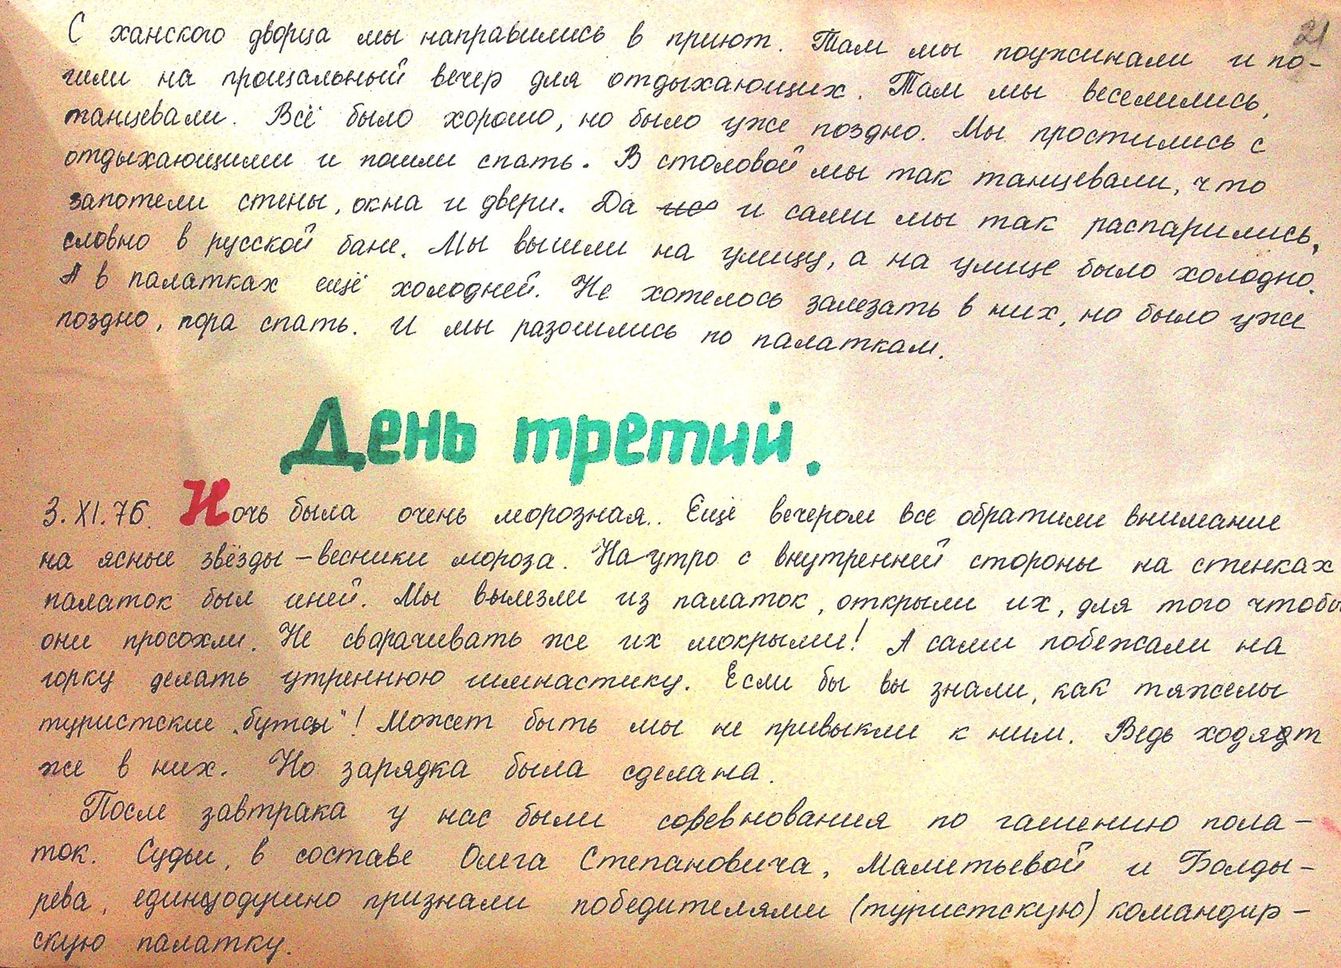 21
С ханского дворца мы направились в приют. Там мы поужинали и по-
шли на прощальный вечер для отдыхающих. Там мы веселились,
танцевали. Всё было хорошо, но было уже поздно. Мы простились с
отдыхающими и пошли спать. В столовой мы так танцевали, что
запотели стены, окна и двери. Да и сами мы так распарились,
словно в русской бане. Мы вышли на улицу, а на улице было холодно.
А в палатках ещё холодней. Не хотелось залезать в них, но было уже
поздно, пора спать. И мы разошлись по палаткам.
День третий.
3.XI.76. Ночь была очень морозная.. Ещё вечером все обратили внимание
на ясные звёзды – весники мороза. На утро с внутренней стороны на стенках
палаток был иней. Мы вылезли из палаток, открыли их, для того чтобы
они просохли. Не сворачивать же их мокрыми! А сами побежали на
горку делать утреннюю гимнастику. Если бы вы знали, как тяжелы
туристские „бутсы"! Может быть мы не привыкли к ним. Ведь ходят
же в них. Но зарядка была сделана.
После завтрака у нас были соревнования по гашению пола-
ток. Судьи, в составе Олега Степановича, Малитьевой и Болды-
рева, единодушно признали победителями (туристскую) командир-
скую палатку.